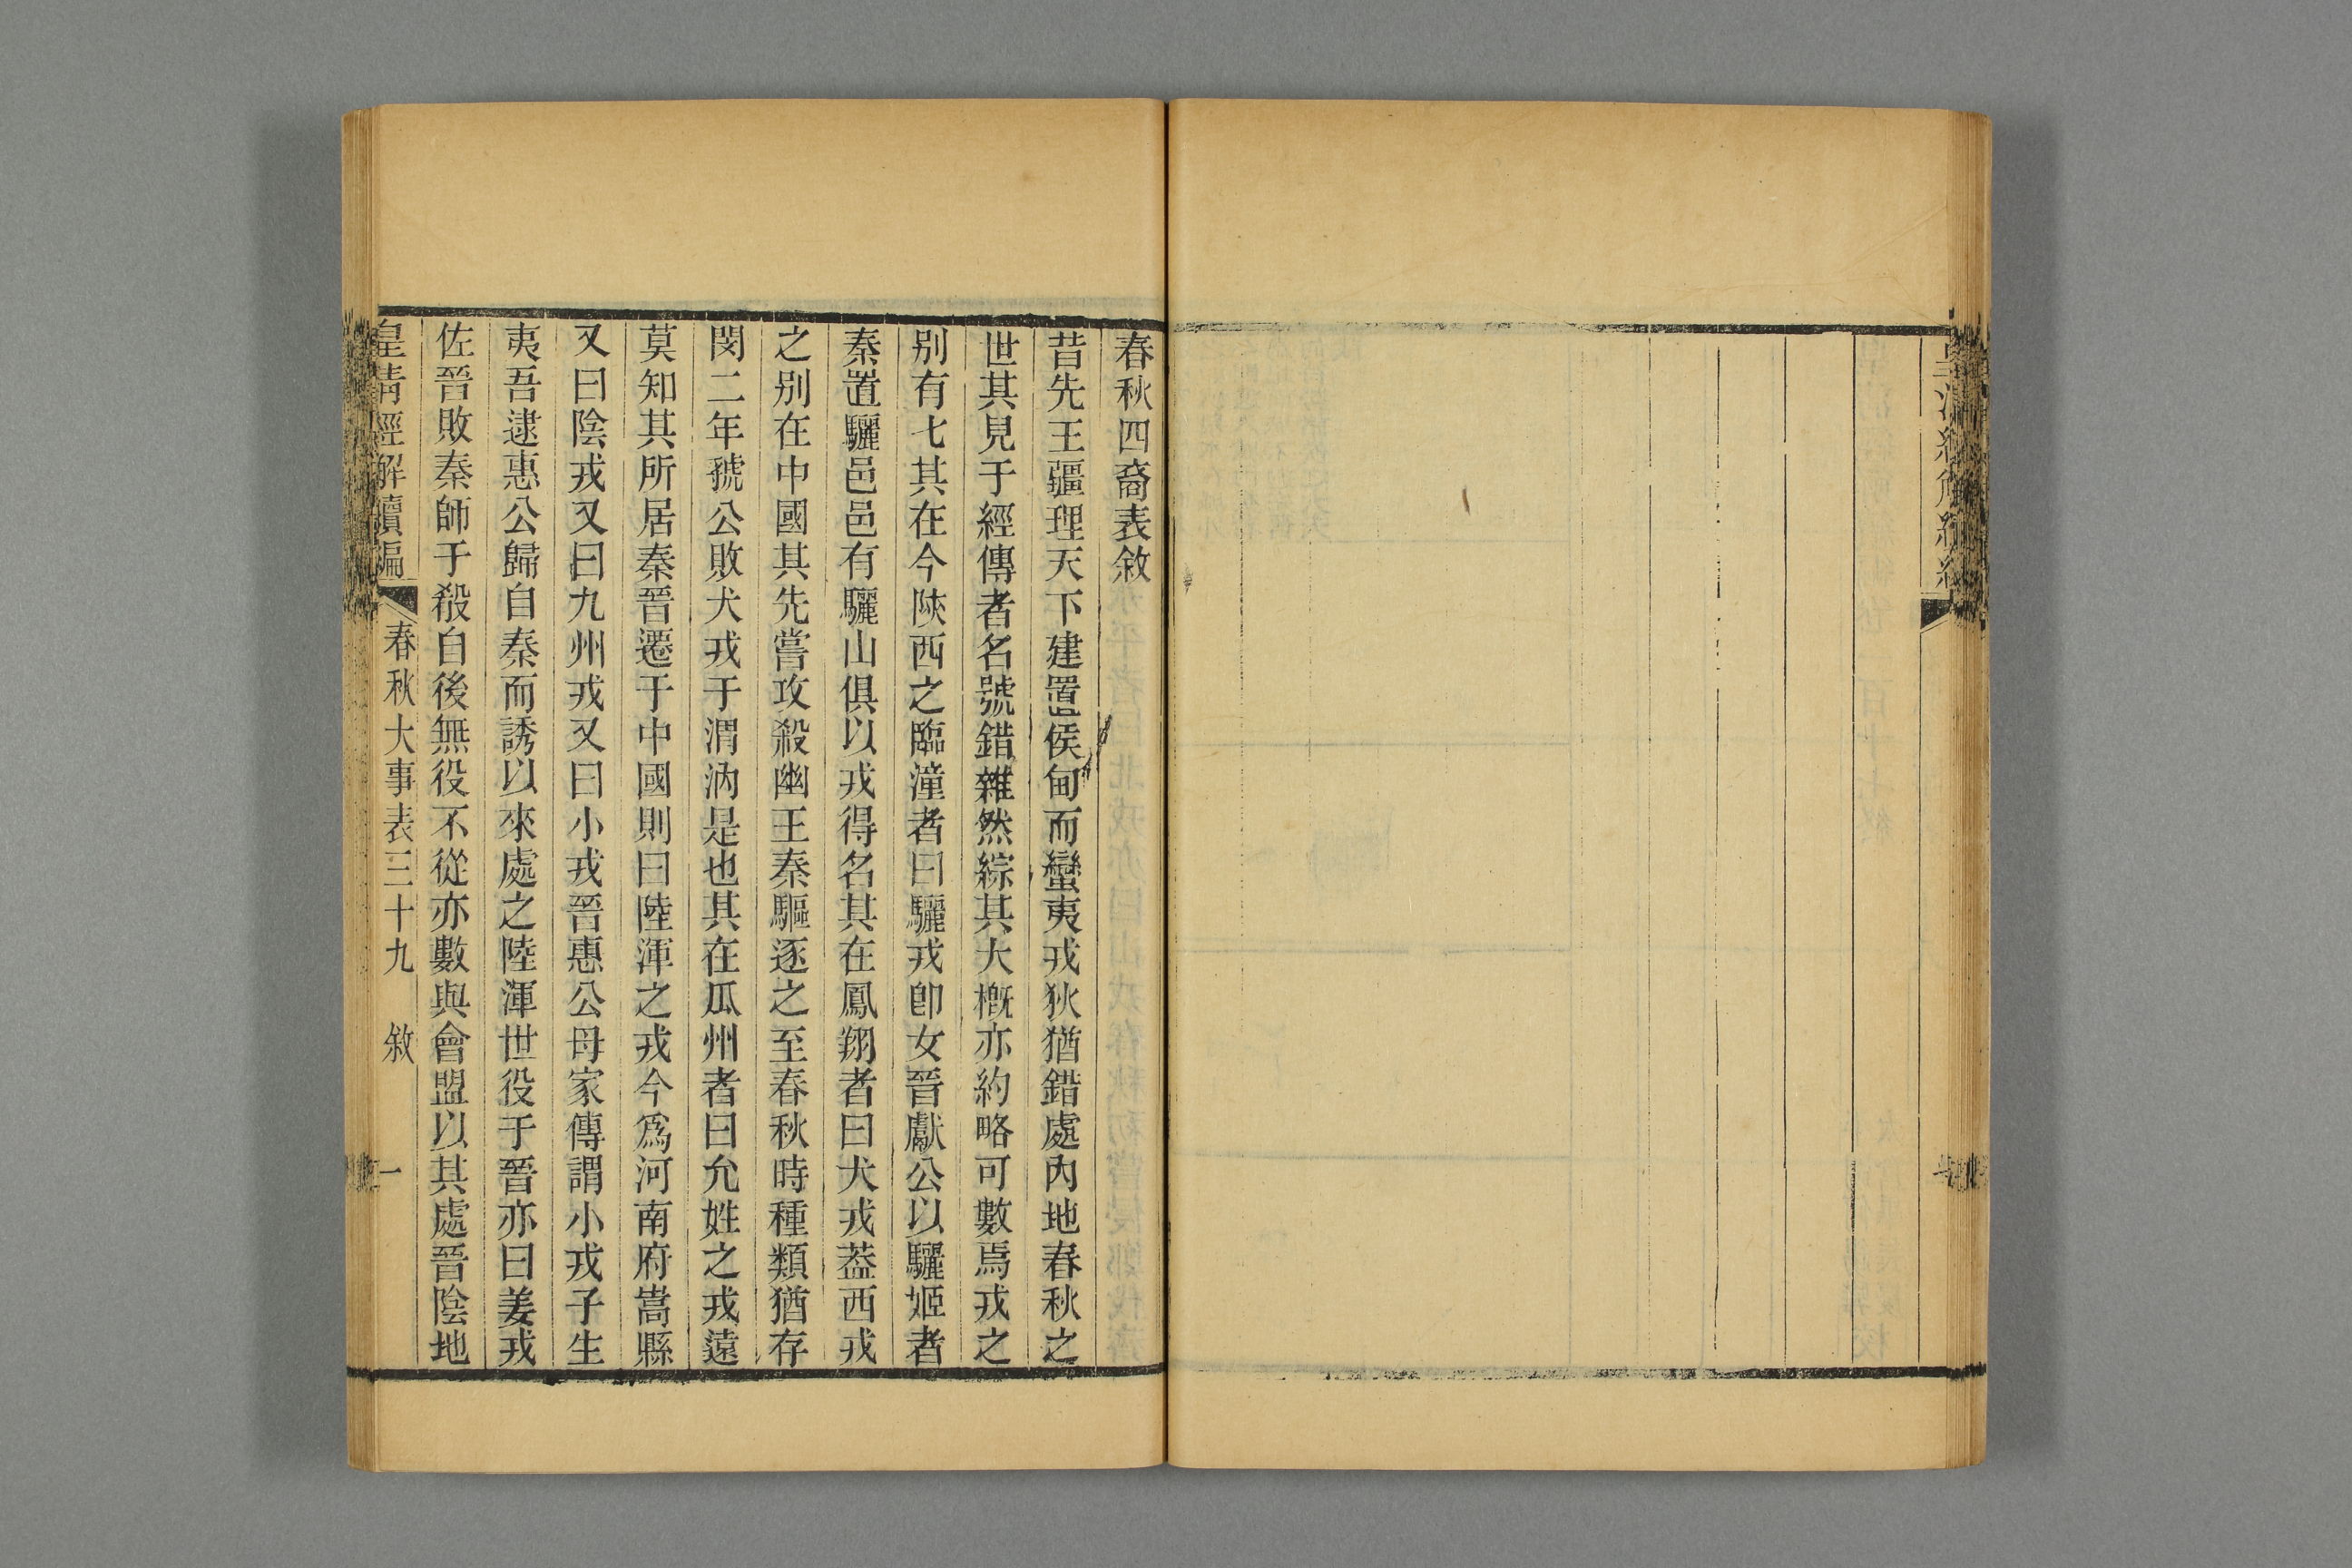 春秋四裔表敘
昔先王疆理天下建置侯甸而蠻夷戎狄猶錯處內地春秋之
世其見于經傳者名號錯雜然綜其大概亦約略可數焉戎之
別有七其在今陝西之臨潼者曰驪戎卽女晉獻公以驪姬者
秦置驪邑邑有驪山俱以戎得名其在鳳翔者曰犬戎葢西戎
之別在中國其先嘗攻殺幽王秦驅逐之至春秋時種類猶存
閔二年虢公敗犬戎于渭汭是也其在瓜州者曰允姓之戎遠
莫知其所居秦晉遷于中國則曰陸渾之戎今爲河南府嵩縣
又曰陰戎又曰九州戎又曰小戎晉惠公母家傳謂小戎子生
夷吾逮惠公歸自秦而誘以來處之陸渾世役于晉亦曰姜戎
佐晉敗秦師于殽自後無役不從亦數與會盟以其處晉陰地
皇清經解續編 春秋大事表三十九 敘 一